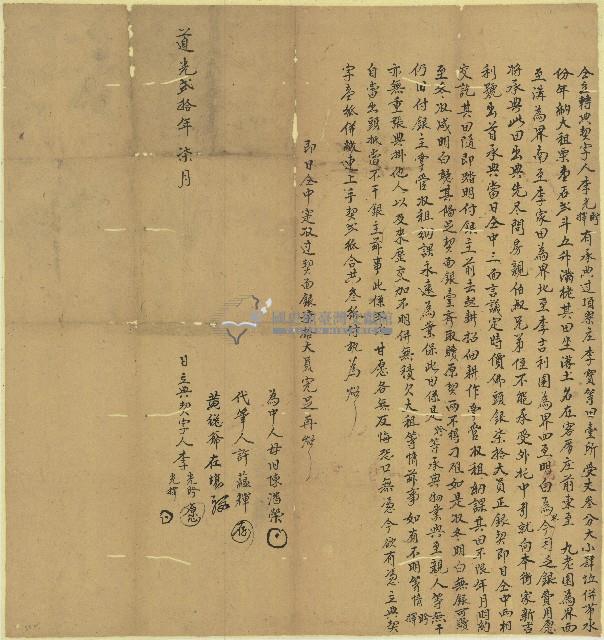 仝立轉典契字人李光盼輝有承典过項寮庄李寶等田壹所受丈叁分大小肆垃併帶水
份年納大租粟壹石貳斗五升滿栳其田坐落土名在寮厝庄前東至九老園為界西
至溝為界南至李家田為界北至李吉利園為界四至明白為界今因乏銀費用愿
將承典此田出典先尽問房親伯叔兄弟侄不能承受外托中引就向本街家新吉
利號出首承典當日仝中三面言議定時價佛頭銀柒拾大員正銀契即日仝中兩相
交訖其田隨即踏明付銀主前去起耕招佃耕作掌管收租納課其田不限年月
至冬收成明白聽其備足契面銀壹齊取贖原契兩不得刁难如是收冬明白無銀可贖
仍旧付銀主掌管收租納課永遠為業保此田係是盼輝等承典物業與至親人等無干
亦無重張典掛他人以及來歷交加不明併無積欠大租等情前事如有不明等情盼輝
自當出頭抵當不干銀主前事此係甘愿各無反悔恐口無憑今欲有憑立典契
字壹紙併繳連上手契貳紙合共叁紙付執為炤
即日仝中寔收过契面銀柒拾大員完足再炤
為中人母旧陳潘榮
代筆人許蘊輝
黃從爺在場
日立典契字人李光盼光輝
道光貳拾年柒月
國史館臺灣文獻館